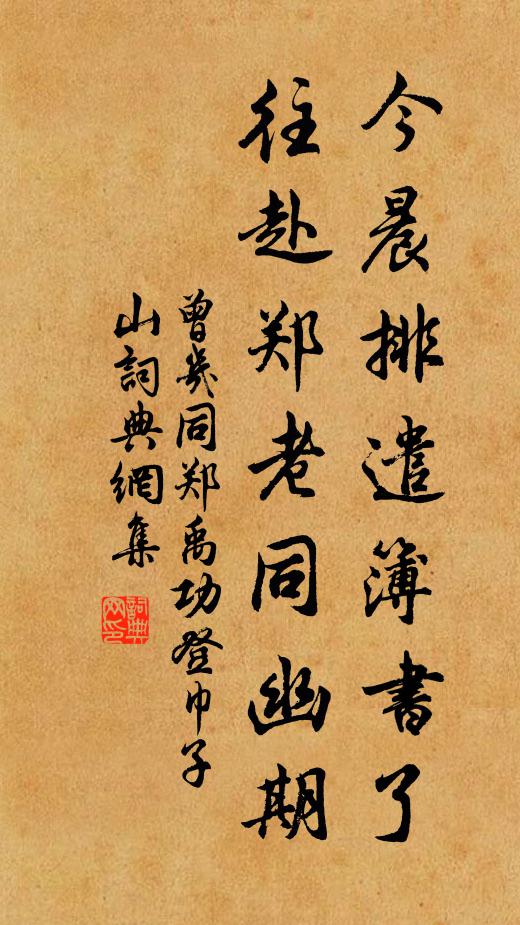 今晨排遣簿書了
往赴郑老同幽期
曾幾同郑禹功登巾子
山詞典網集
詞典
网印